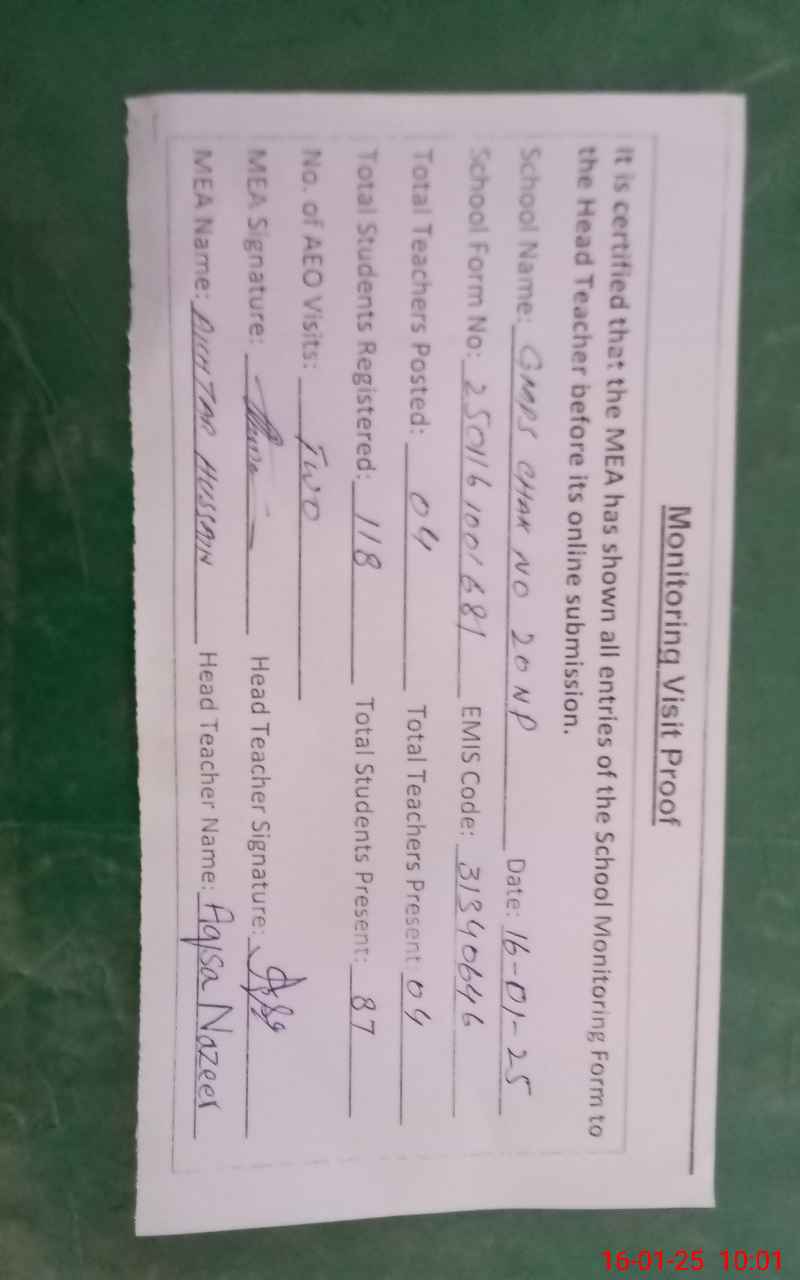 Monitoring Visit Proof
It is certified that the MEA has shown all entries of the School Monitoring Form to
the Head Teacher before its online submission.
School Name: GMPS CHAK NO 20 NP Date: 16-01-25
School Form No: 250116 1001681 EMIS Code: 31340646
Total Teachers Posted: 04 Total Teachers Present: 04
Total Students Registered: 118 Total Students Present: 87
No. of AEO Visits: TWO
MEA Signature: Head Teacher Signature:
MEA Name: AKHTAR HUSSAIN Head Teacher Name: Aqsa Nazeer
16-01-25 10:01